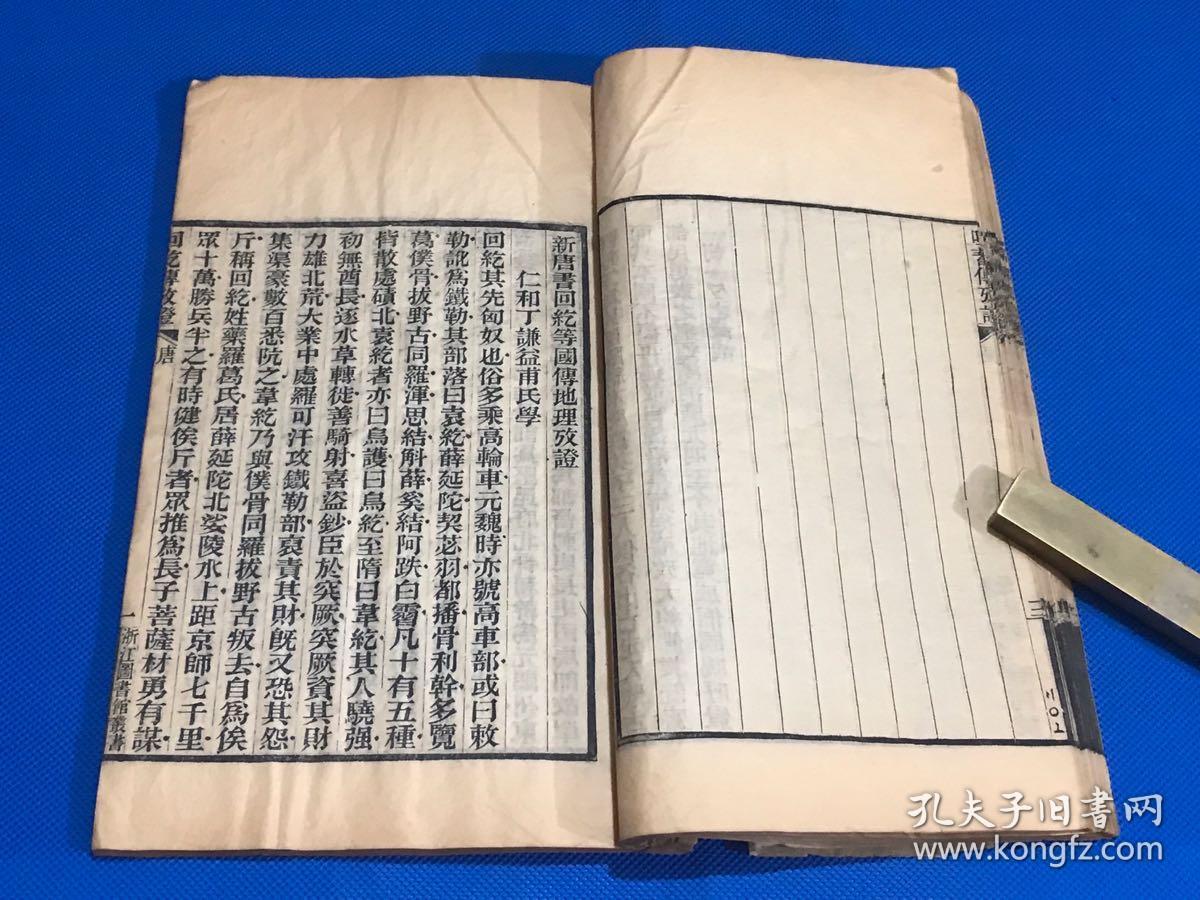 新唐書回紇等國傳地理攷證
仁和丁謙益甫氏學
回紇其先匈奴也俗多乘高輪車元魏時亦號高車部或曰敕
勒訛爲鐵勒其部落曰袁紇薛延陀契苾羽都播骨利幹多覽
葛僕骨拔野古同羅渾思結斛薛奚結阿跌白霫凡十有五種
皆散處磧北袁紇者亦曰烏護曰烏紇至隋曰韋紇其人驍强
初無酋長逐水草轉徙善騎射喜盜鈔臣於突厥突厥資其財
力雄北荒大業中處羅可汗攻鐵勒部裒責其財既又恐其怨
集渠豪數百悉阬之韋紇乃與僕骨同羅拔野古叛去自爲俟
斤稱回紇姓藥羅葛氏居薛延陀北娑陵水上距京師七千里
眾十萬勝兵半之有時健俟斤者眾推爲長子菩薩材勇有謀
回紇傳攷證
唐
一
浙江圖書館叢書
三
孔夫子旧书网
www.kongfz.com